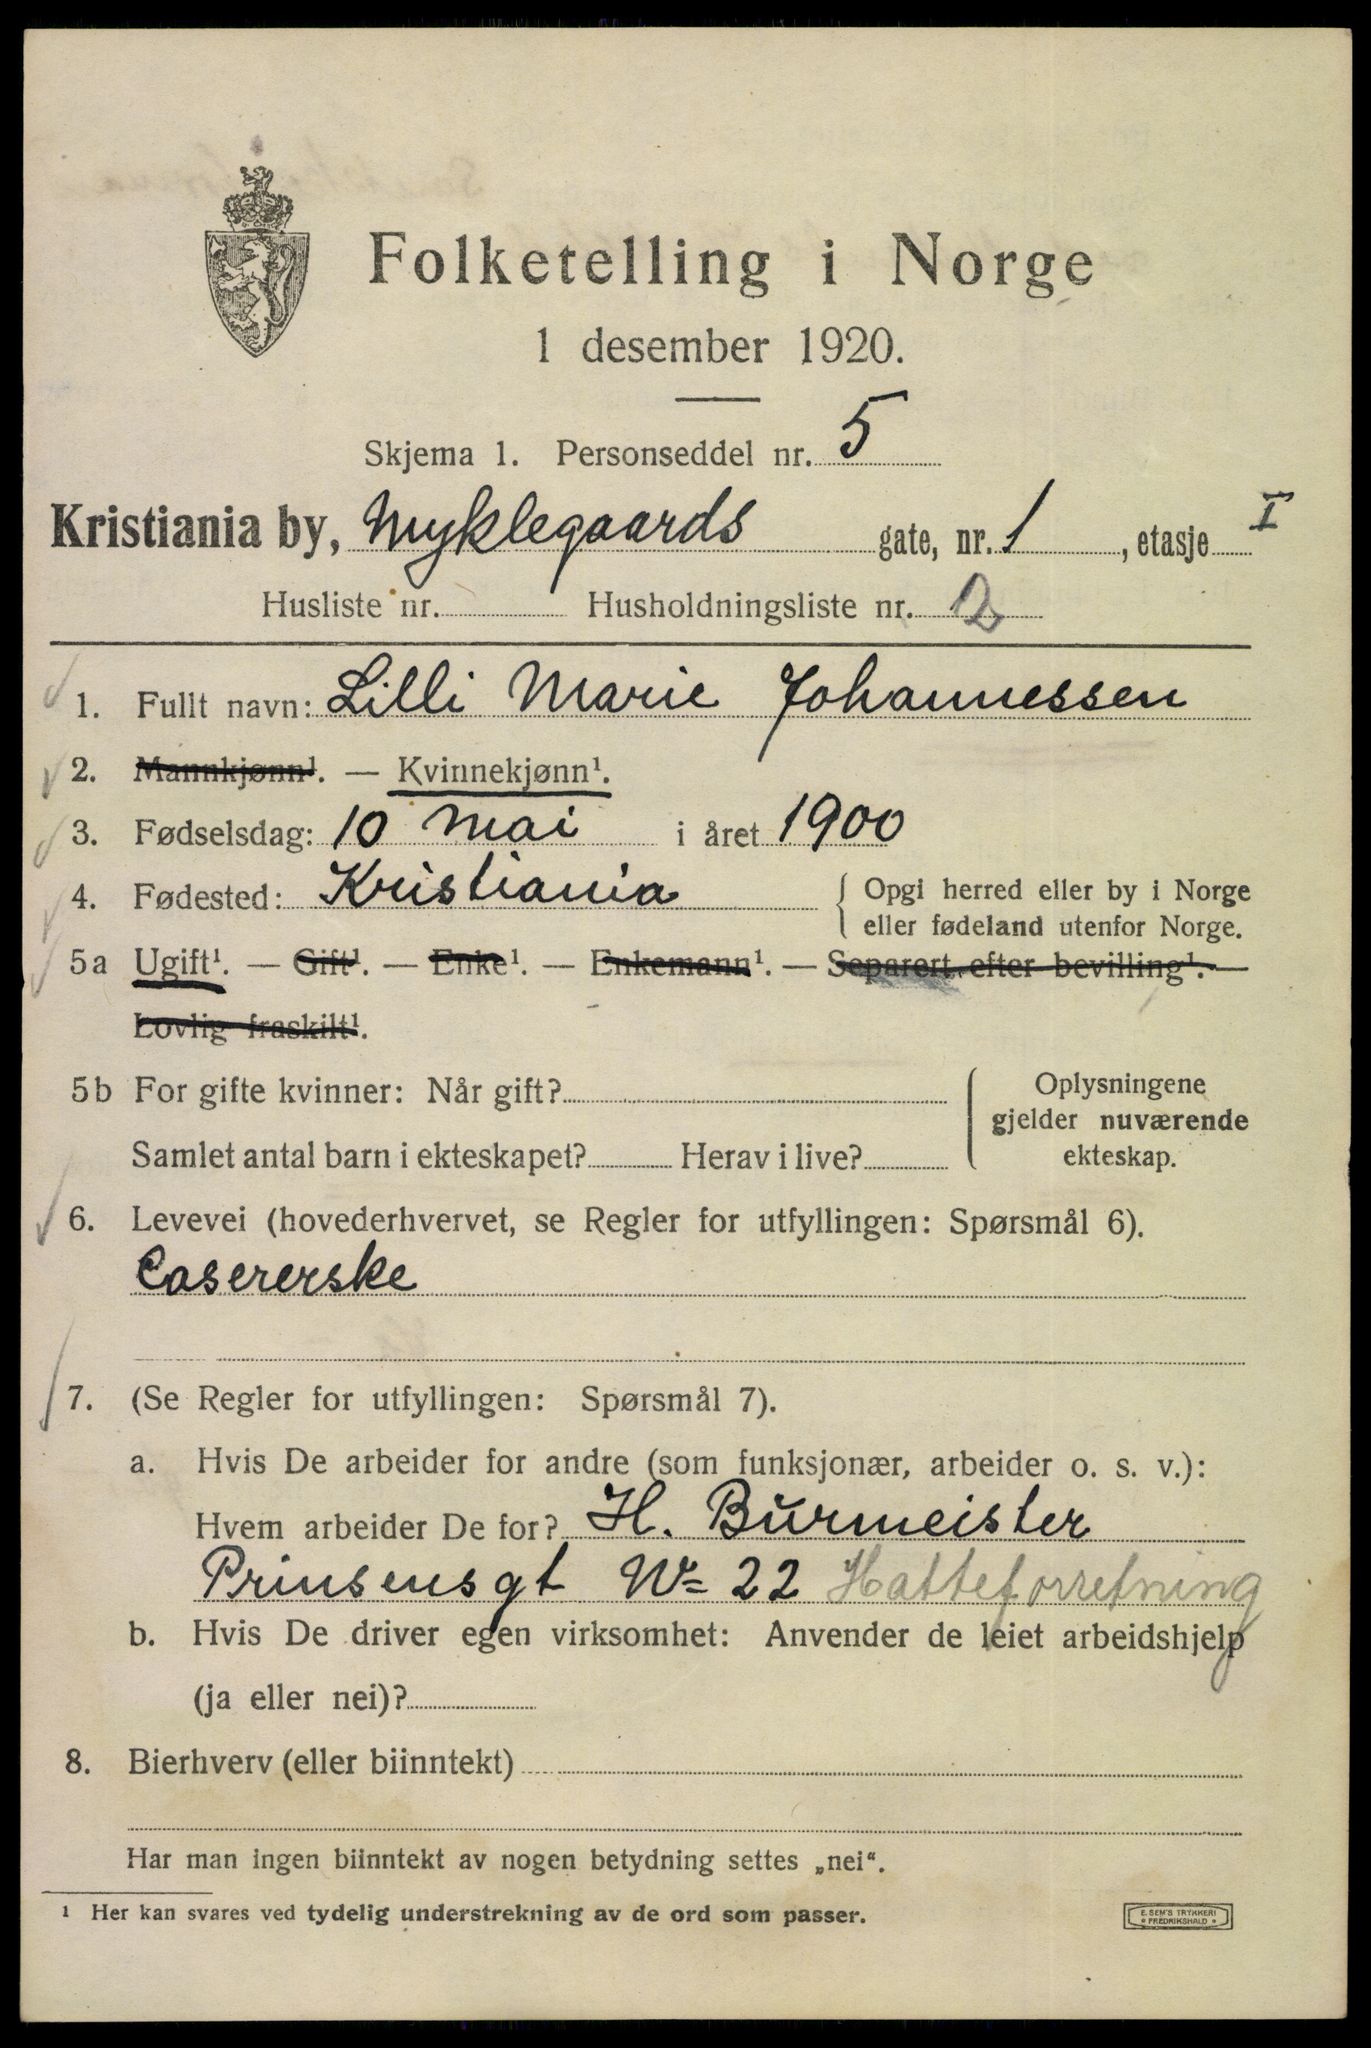 Folketelling i Norge
1 desember 1920.
Skjema 1. Personseddel nr. 5
Kristiania by, Myklegaards gate, nr. 1, etasje I
Husliste nr. Husholdningsliste nr. 2
1. Fullt navn: Lilli Marie Johannessen
2. Mannkjønn¹. — Kvinnekjønn¹.
3. Fødselsdag: 10 mai i året 1900
4. Fødested: Kristiania { Opgi herred eller by i Norge
eller fødeland utenfor Norge.
5a Ugift¹. — Gift¹. — Enke¹. — Enkemann¹. — Separert efter bevilling¹. —
Lovlig fraskilt¹.
5b For gifte kvinner: Når gift?
Samlet antal barn i ekteskapet? Herav i live?
{ Oplysningene
gjelder nuværende
ekteskap.
6. Levevei (hovederhvervet, se Regler for utfyllingen: Spørsmål 6).
Casererske
7. (Se Regler for utfyllingen: Spørsmål 7).
a. Hvis De arbeider for andre (som funksjonær, arbeider o. s. v.):
Hvem arbeider De for? H. Burmeister
Prinsensgt No 22 Hatteforretning
b. Hvis De driver egen virksomhet: Anvender de leiet arbeidshjelp
(ja eller nei)?
8. Bierhverv (eller biinntekt)
Har man ingen biinntekt av nogen betydning settes „nei“.
¹ Her kan svares ved tydelig understrekning av de ord som passer.
E. SEM'S TRYKKERI
FREDRIKSHALD